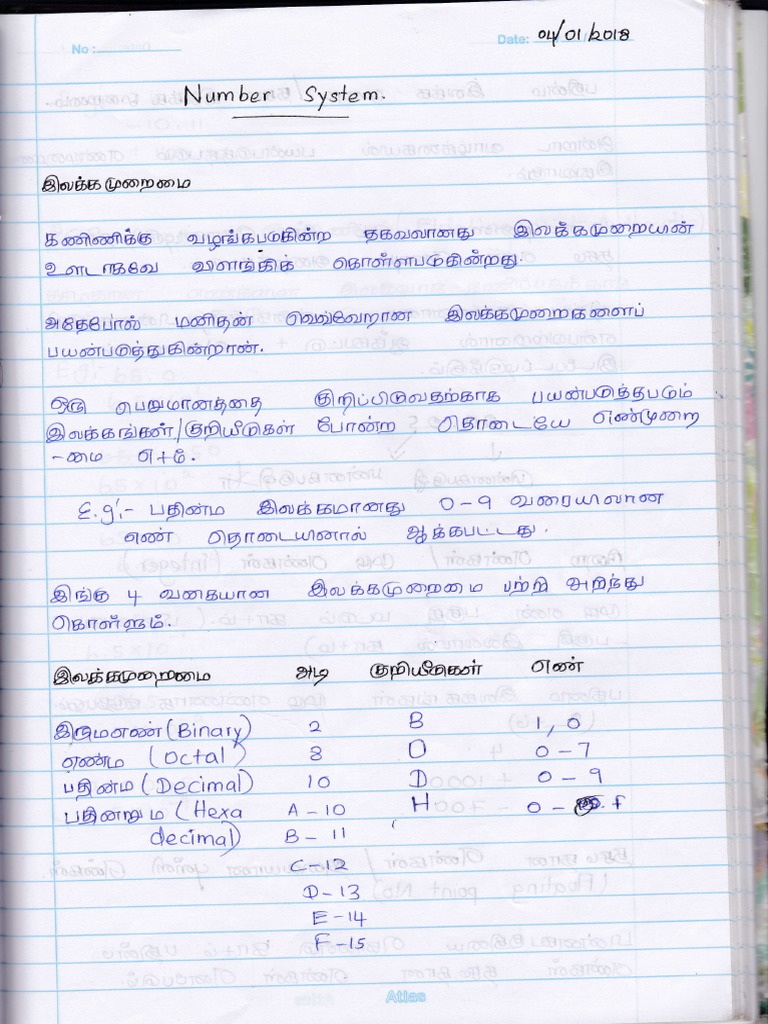 No :
Date: 04/01/2018
Number System.
இலக்கமுறைமை
கணிணிக்கு வழங்கபடுகின்ற தகவலானது இலக்கமுறையின்
ஊடாகவே விளங்கிக் கொள்ளபடுகின்றது.
அதேபோல் மனிதன் வெவ்வேறான இலக்கமுறைகளைப்
பயன்படுத்துகின்றான்.
ஒரு பெறுமானத்தை குறிப்பிடுவதற்காக பயன்படுத்தபடும்
இலக்கங்கள்/குறியீடுகள் போன்ற தொடையே எண்முறை
-மை எ+ம்.
E.g:- பதின்ம இலக்கமானது 0-9 வரையிலான
எண் தொடையினால் ஆக்கபட்டது.
இங்கு 4 வகையான இலக்கமுறைமை பற்றி அறிந்து
கொள்ளும்.
இலக்கமுறைமை அடி குறியீடுகள் எண்
இருமஎண் (Binary) 2 B 1, 0
எண்ம (Octal) 8 O 0-7
பதின்ம (Decimal) 10 D 0-9
பதினறும (Hexa A-10 H 0-F
decimal) B-11
C-12
D-13
E-14
F-15
Atlas